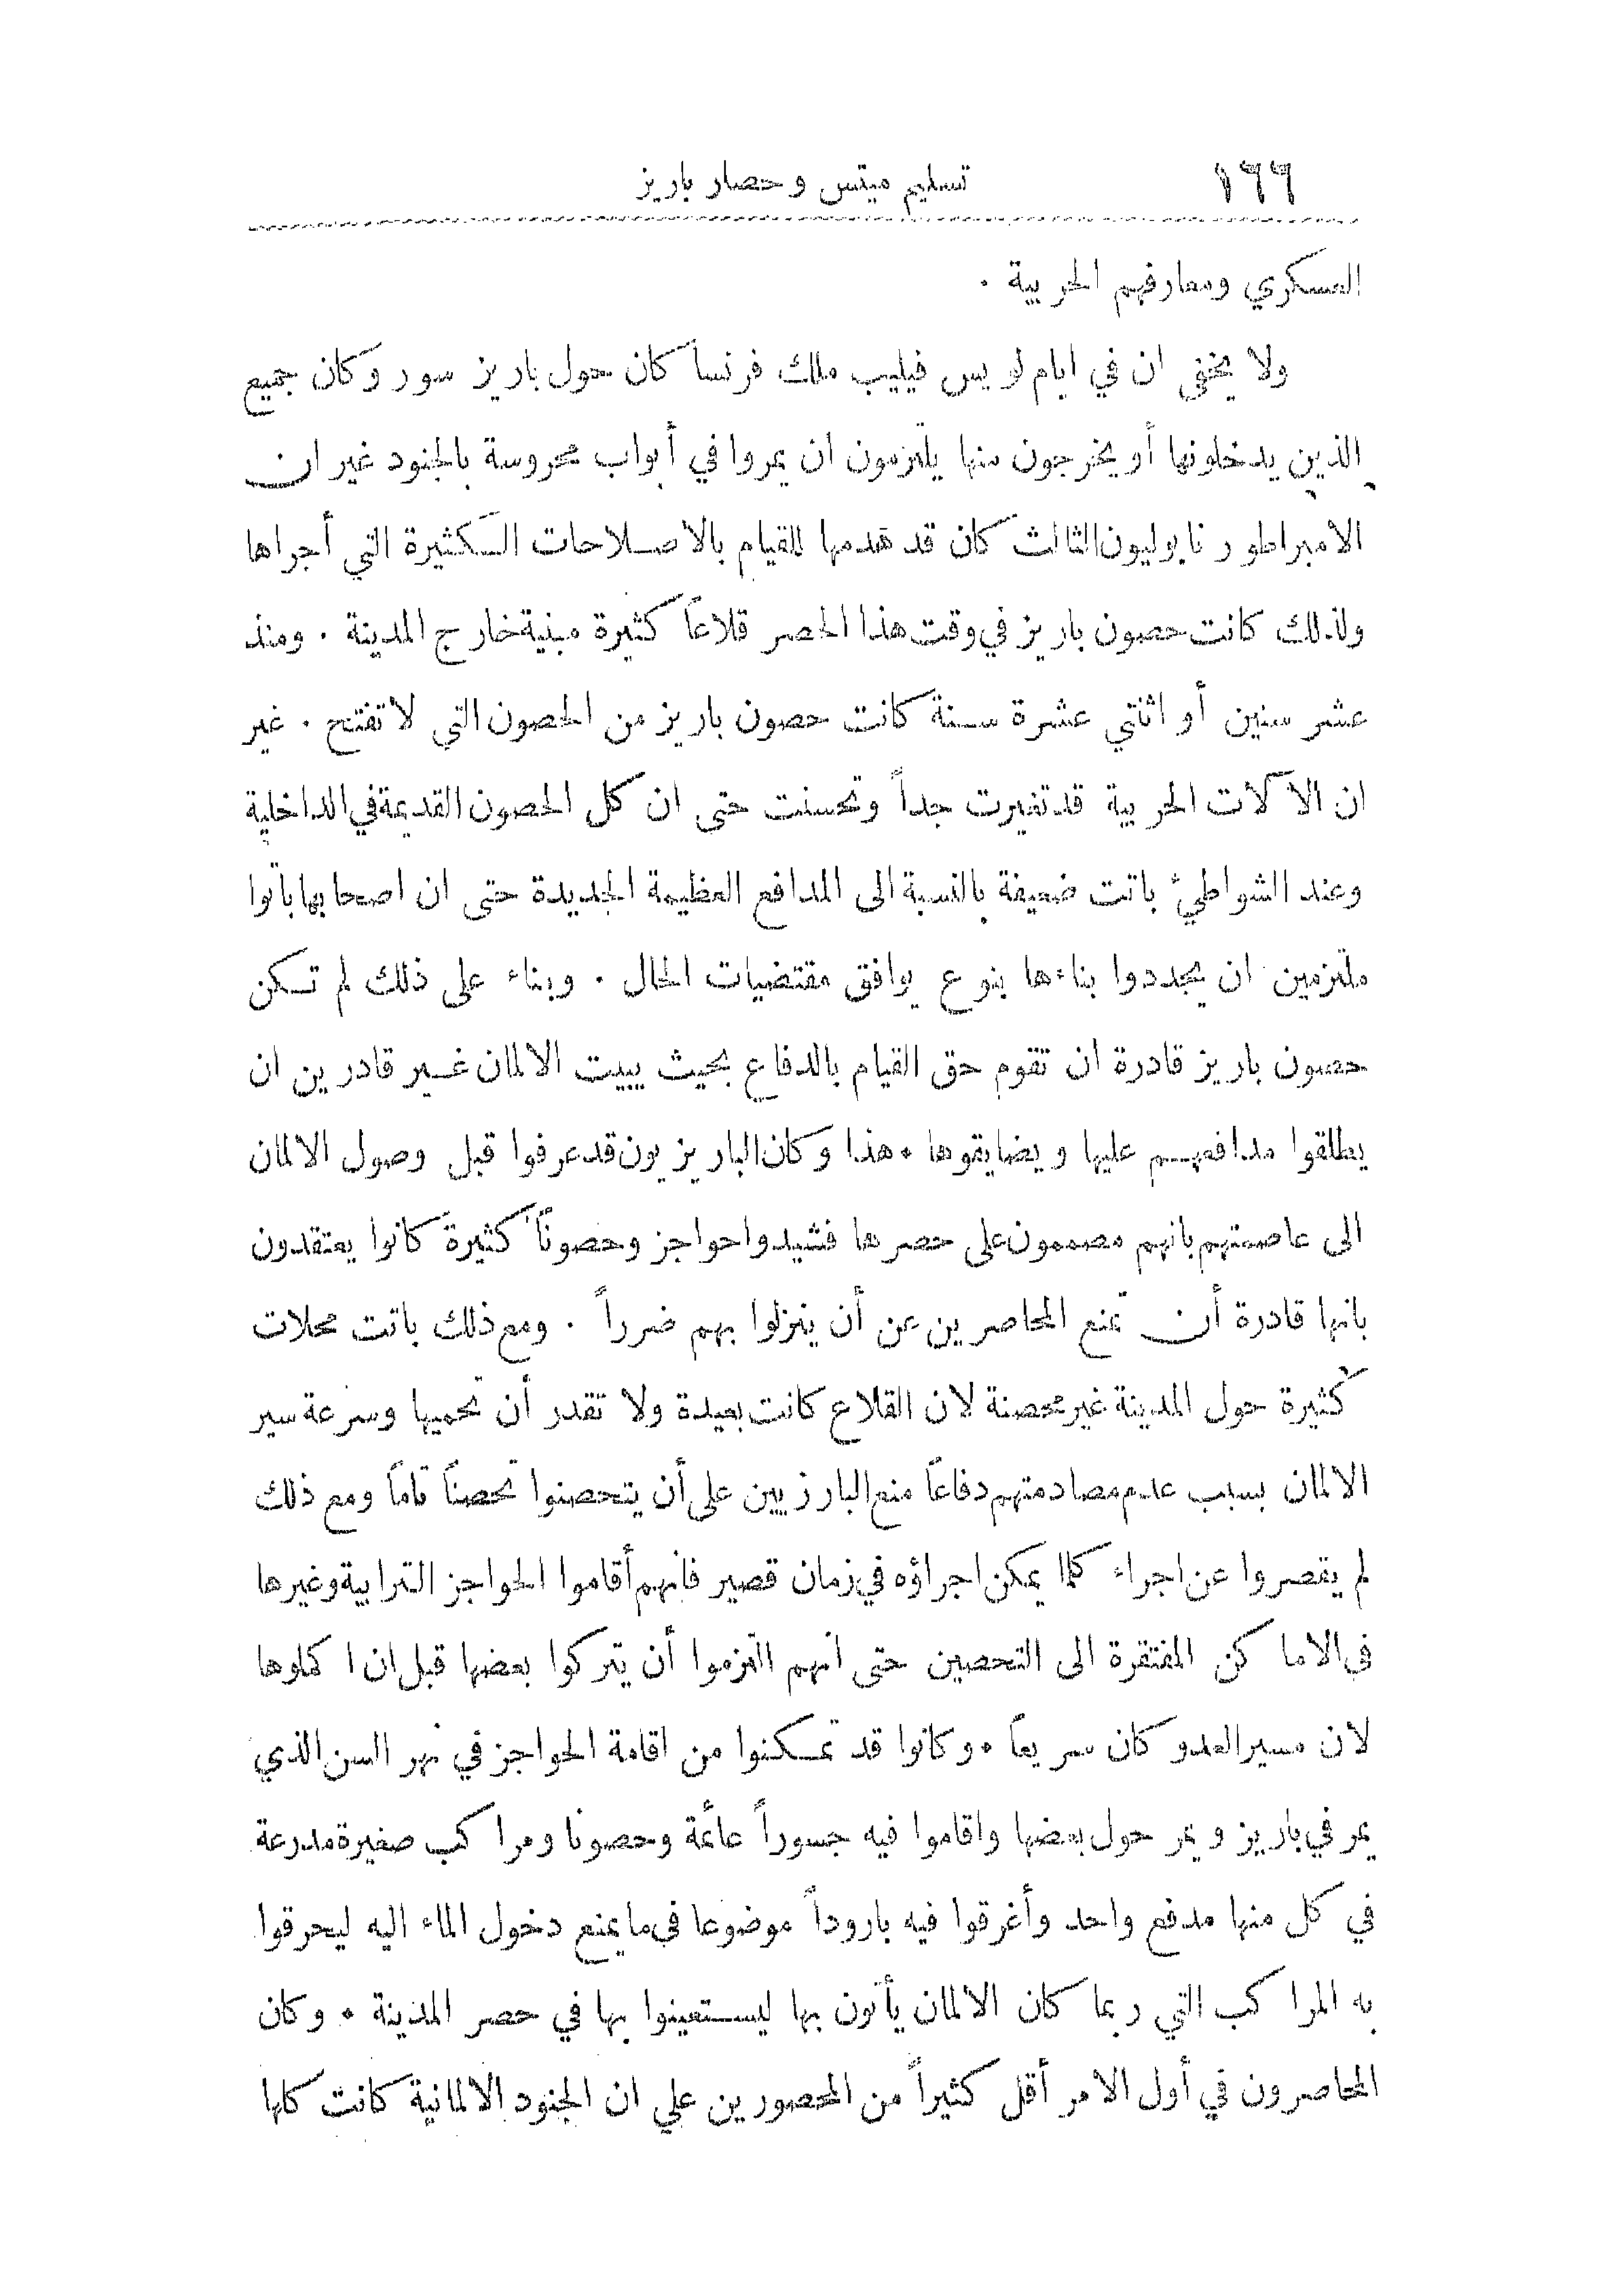 ١٦٦ تسليم ميتس وحصار باريز
العسكري ومعارفهم الحربية .
ولا يخفى ان في ايام لويس فيليب ملك فرنسا كان حول باريز سور وكان جميع
الذين يدخلونها أو يخرجون منها يلتزمون ان يمروا في أبواب محروسة بالجنود غير ان
الامبراطور نابوليون الثالث كان قد هدمها للقيام بالاصلاحات الكثيرة التي أجراها
ولذلك كانت حصون باريز في وقت هذا الحصر قلاعاً كثيرة مبنية خارج المدينة . ومنذ
عشر سنين أو اثنتي عشرة سنة كانت حصون باريز من الحصون التي لا تفتح . غير
ان الآلات الحربية قد تغيرت جداً وتحسنت حتى ان كل الحصون القديمة في الداخلية
وعند الشواطئ باتت ضعيفة بالنسبة الى المدافع العظيمة الجديدة حتى ان اصحابها باتوا
ملتزمين ان يجددوا بناءها بنوع يوافق مقتضيات الحال . وبناء على ذلك لم تكن
حصون باريز قادرة ان تقوم حق القيام بالدفاع بحيث يبيت الالمان غير قادرين ان
يطلقوا مدافعهم عليها ويضايقوها . هذا وكان الباريزيون قد عرفوا قبل وصول الالمان
الى عاصمتهم بانهم مصممون على حصرها فشيدوا حواجز وحصوناً كثيرة كانوا يعتقدون
بانها قادرة أن تمنع المحاصرين عن أن ينزلوا بهم ضرراً . ومع ذلك باتت محلات
كثيرة حول المدينة غير محصنة لان القلاع كانت بعيدة ولا تقدر أن تحميها وسرعة سير
الالمان بسبب عدم مصادمتهم دفاعاً منع البارزيين على أن يتحصنوا تحصناً تاماً ومع ذلك
لم يقصروا عن اجراء كلما يمكن اجراؤه في زمان قصير فانهم أقاموا الحواجز الترابية وغيرها
في الاماكن المفتقرة الى التحصين حتى انهم التزموا أن يتركوا بعضها قبل ان اكملوها
لان مسير العدو كان سريعاً . وكانوا قد تمكنوا من اقامة الحواجز في نهر السن الذي
يمر في باريز ويمر حول بعضها واقاموا فيه جسوراً عائمة وحصونا ومراكب صغيرة مدرعة
في كل منها مدفع واحد وأغرقوا فيه باروداً موضوعا في ما يمنع دخول الماء اليه ليحرقوا
به المراكب التي ربما كان الالمان يأتون بها ليستعينوا بها في حصر المدينة . وكان
المحاصرون في أول الامر أقل كثيراً من المحصورين علي ان الجنود الالمانية كانت كلها